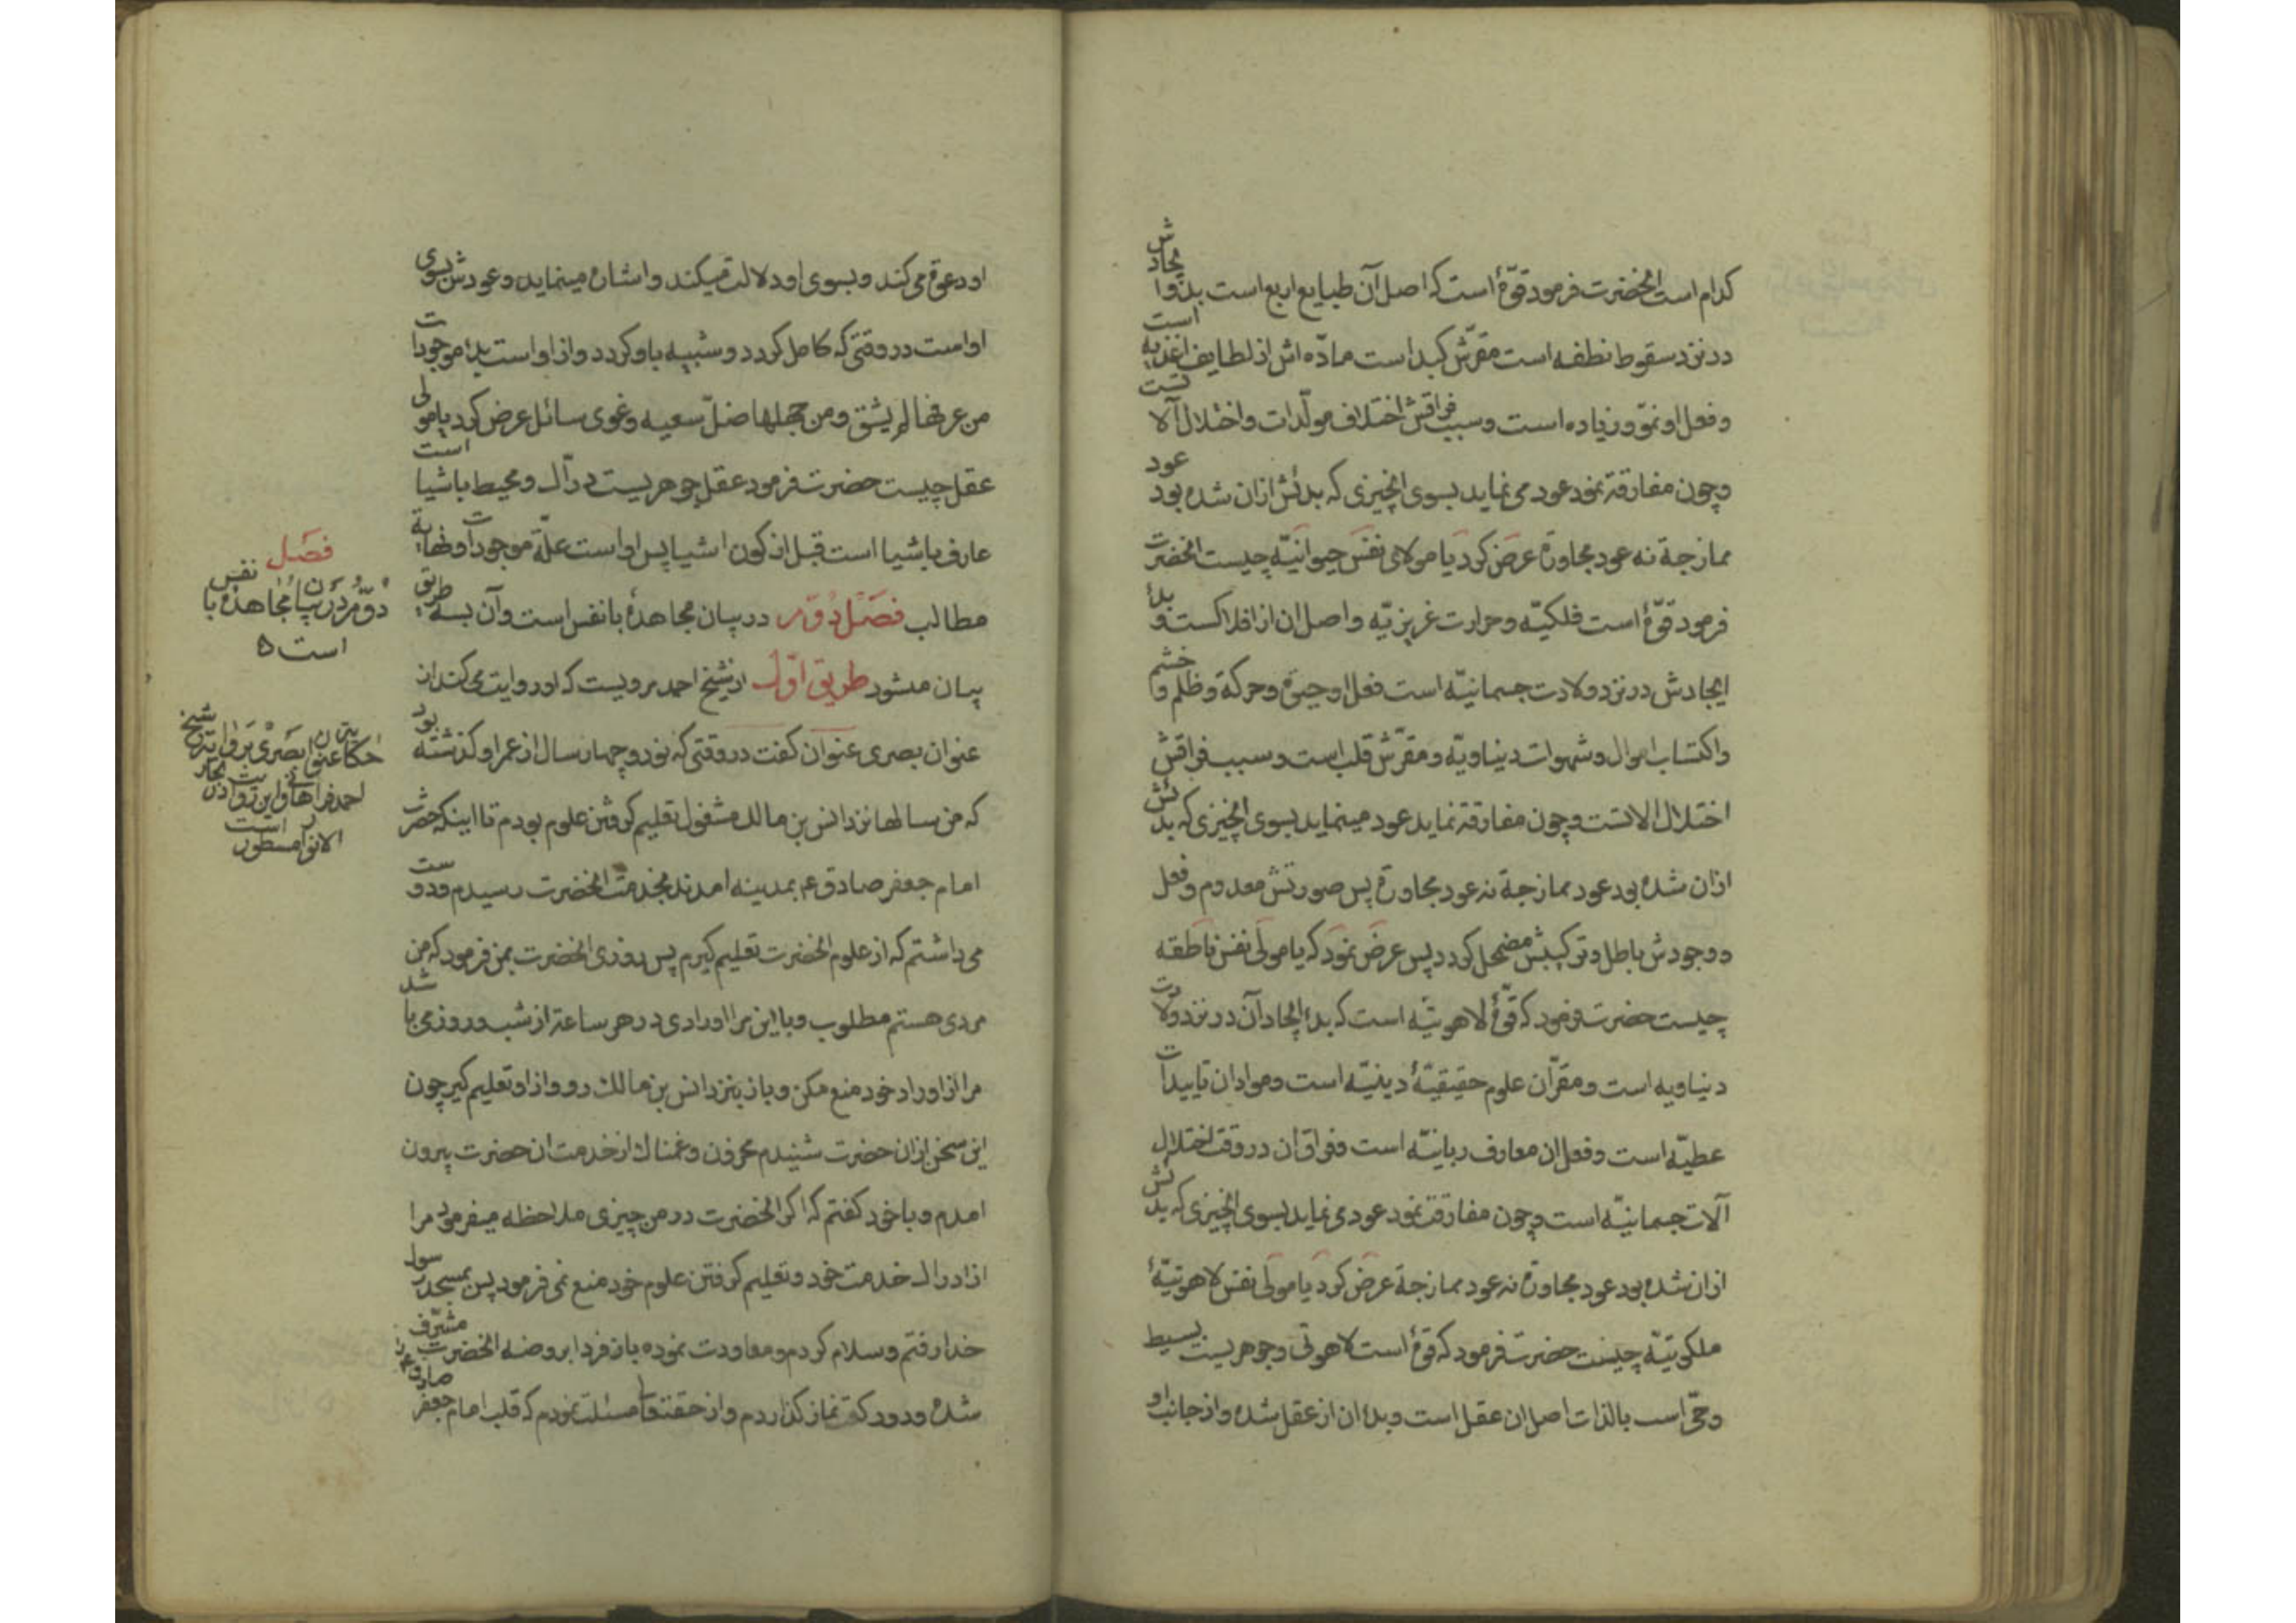 کدام است انحضرت فرمود قوّهٔ است که اصل آن طبایع اربع است بدؤ ایجادش
در نزد سقوط نطفه است مقرّش کبد است مادّه اش از لطایف اغذیه است
و فعل او نموّ و زیاده است و سبب فراقش اختلاف مولّدات و اختلال آلاتست
و چون مفارقة نمود عود می نماید بسوی انچیزی که بدئش ازان شده بود عود
ممازجة نه عود مجاورة عرض کرد یا مولای نفس حیوانیّه چیست انحضرت
فرمود قوّهٔ است فلکیّه و حرارت غریزیّه و اصل ان از افلاکست و بدأ
ایجادش در نزد ولادت جسمانیّه است فعل او حیوة و حرکة و ظلم و خشم
و اکتساب اموال و شهوات دنیاویّه و مقرّش قلب است و سبب فراقش
اختلال الاتست و چون مفارقة نماید عود مینماید بسوی انچیزی که بدئش
ازان شده بود عود ممازجة نه عود مجاورة پس صورتش معدوم و فعل
و وجودش باطل و ترکیبش مضمحل کردد پس عرض نمود که یا مولی نفس ناطقه
چیست حضرت فرمود که قوّهٔ لاهوتیّه است که بدأ ایجاد آن در نزد ولادت
دنیاویه است و مقرّ آن علوم حقیقیّهٔ دینیّه است و مواد ان تاییدات
عطیّه است و فعل ان معارف ربانیّه است و فراق ان در وقت اختلال
آلات جسمانیّه است و چون مفارقت نمود عود می نماید بسوی انچیزی که بدئش
ازان شده بود عود مجاورة نه عود ممازجة عرض کرد یا مولی نفس لاهوتیّهٔ
ملکوتیّه چیست حضرت فرمود که قوهٔ است لاهوتی و جوهریست بسیط
و حیّ اسب بالذات اصل ان عقل است و بدأ ان از عقل شده و از جانب او
او دعوة می کند و بسوی او دلالت میکند و اشاره مینماید و عودش بسوی
اوست در وقتی که کامل کردد و شبیه باو کردد و از او است بدأ موجودات
من عرفها لم یشق و من جهلها ضلّ سعیه و غوی سائل عرض کرد یا مولی
عقل چیست حضرت فرمود عقل جوهریست درّاک و محیط باشیا است
عارف باشیا است قبل از کون اشیا پس او است علّة موجودات و نهایة
مطالب فصل دوّم در بیان مجاهدهٔ با نفس است و آن بسه طریق
بیان میشود طریق اوّل از شیخ احمد مرویست که او روایت می کند از
عنوان بصری عنوان کفت در وقتی که نود و چهار سال از عمر او کذشته بود
که من سالها نزد انس بن مالک مشغول تعلیم کرفتن علوم بودم تا اینکه حضرت
امام جعفر صادق ع بمدینه امدند بخدمت انحضرت رسیدم و دوست
می داشتم که از علوم انحضرت تعلیم کیرم پس روزی انحضرت بمن فرمود که من
مردی هستم مطلوب و با این مرا اورادی در هر ساعتی از شب و روز می باشد
مرا از اوراد خود منع مکن و باز بنزد انس بن مالک رو و از او تعلیم کیر چون
این سخن ازان حضرت شنیدم محزون و غمناک از خدمت ان حضرت بیرون
امدم و با خود کفتم که اکر انحضرت در من چیزی ملاحظه میفرمود مرا
از ادراک خدمت خود و تعلیم کرفتن علوم خود منع نمی فرمود پس بمسجد رسول
خدا رفتم و سلام کردم و معاودت نموده باز فردا بروضه انحضرت مشرّف
شده و دو رکعة نماز کذاردم و از حقتعالی مسئلت نمودم که قلب امام جعفر صادق ع را
فصل
دوّم در بیان مجاهده با نفس
است
حکایت عنوان بصری بروایت شیخ
احمد فراهانی و این روایت در بحار
الانوار مسطور است